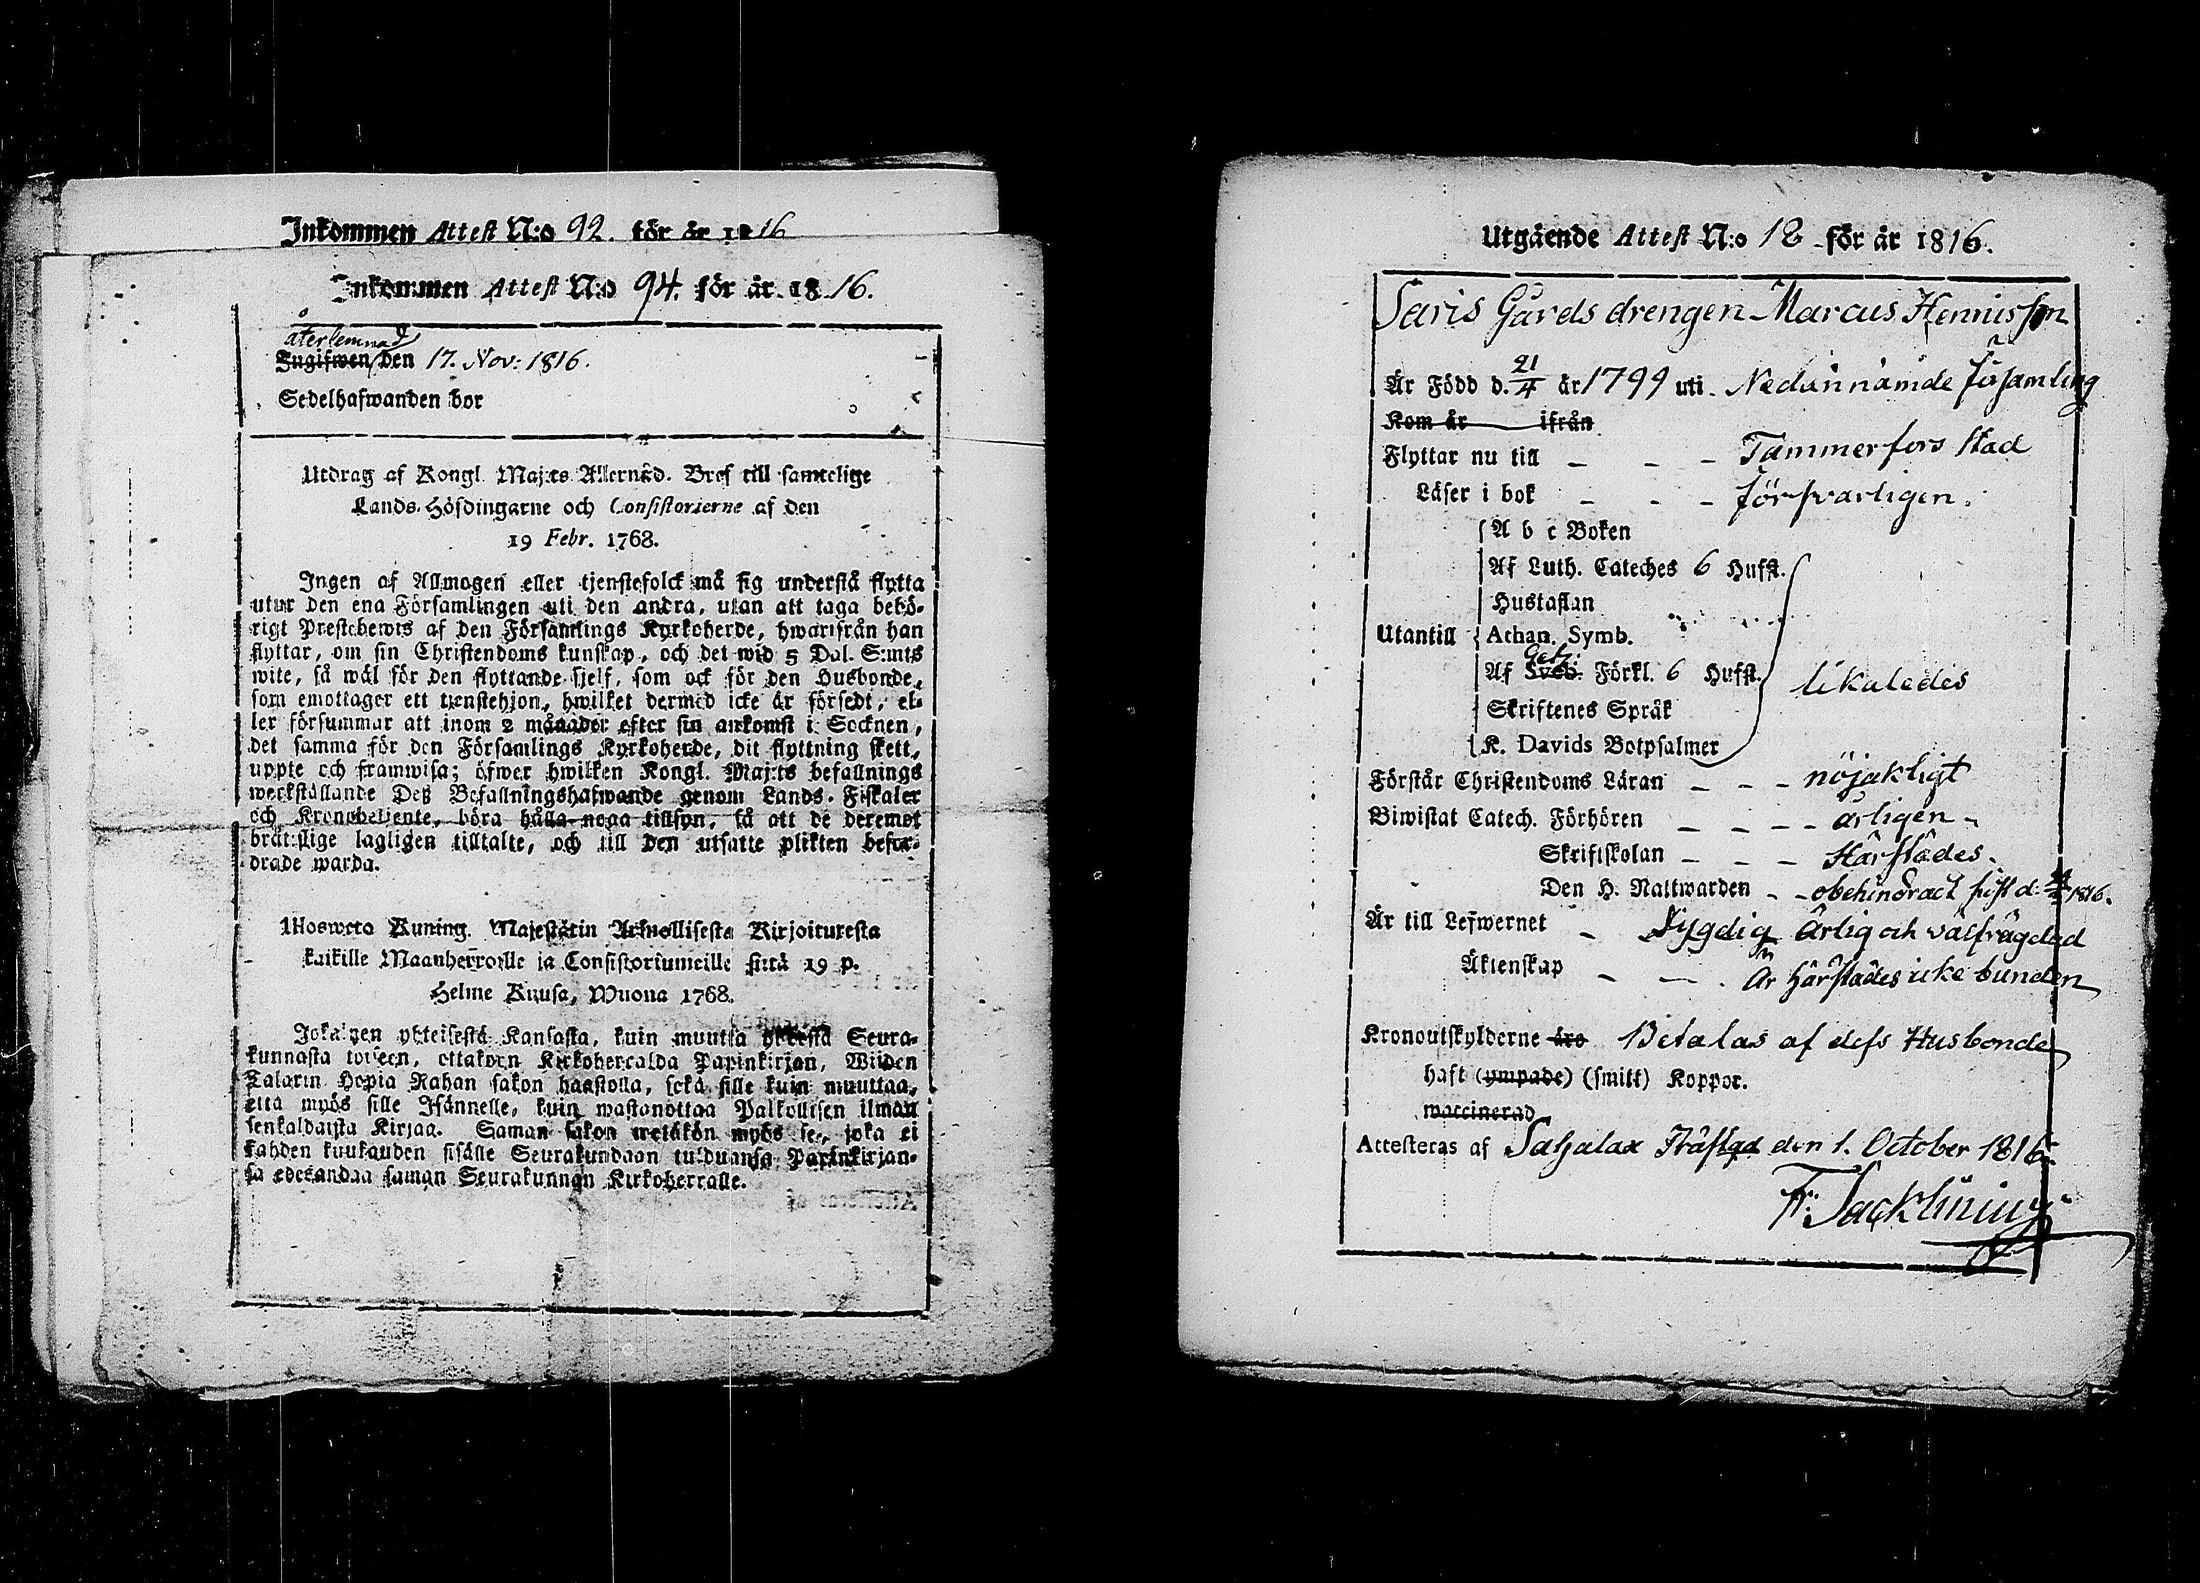 Inkommen Attest N:o 92. för år 1816
Inkommen Attest N:o 94. för år 1816.
återlemnad
Ingifwen den 17. Nov: 1816.
Sedelhafwanden bor
Utdrag af Kongl. Maj:ts Allernåd. Bref till samtelige
Lands-Höfdingarne och Consistorierne af den
19 Febr. 1768.
Ingen af Allmogen eller tjenstefolck må sig understå flytta
utur den ena Församlingen uti den andra, utan att taga behö-
rigt Prestebewis af den Församlings Kyrkoherde, hwarifrån han
flyttar, om sin Christendoms kunskap, och det wid 5 Dal. S:mts
wite, så wäl för den flyttande sjelf, som ock för den Husbonde,
som emottager ett tjenstehjon, hwilket dermed icke är försedt, el-
ler försummar att inom 2 månader efter sin ankomst i Socknen,
det samma för den Församlings Kyrkoherde, dit flyttning skett,
uppte och framwisa; öfwer hwilken Kongl. Maj:ts befallnings
werkställande Deß Befallningshafwande genom Lands-Fiskaler
och Kronobetjente, böra hålla noga tillsyn, så att de deremot
brätslige lagligen tilltalte, och till den utsatte plikten befor-
drade warda.
Ulosweto Kuning. Majestätin Armollisesta Kirjoituxesta
kaikille Maanherroille ja Consistoriumeille siitä 19 p.
Helme Kuusa, Wuona 1768.
Jokaitzen yhteisestä Kansasta, kuin muutta yhdestä Seura-
kunnasta toiseen, ottakoon Kirkoherralda Papinkirjan, Wiiden
Talarin Hopia Rahan sakon haastolla, sekä sille kuin muuttaa,
että myös sille Isännelle, kuin wastanottaa Palkollisen ilman
senkaldaista Kirjaa. Saman sakon wetäkön myös se, joka ei
kahden kuukauden sisälle Seurakundaan tulduansa Papinkirjan-
sa edesandaa saman Seurakunnan Kirkoherralle.
Utgående Attest N:o 18 för år 1816.
Saris Gårds drengen Marcus Henricsson
Är Född d. 21/4 år 1799 uti Nedannämde församling
Kom år ifrån
Flyttar nu till - - - Tammerfors stad
Läser i bok - - - försvarligen.
A b c Boken
Af Luth. Cateches 6 Hufst.
Hustaflan
Utantill Athan. Symb.
Af Sveb. Förkl. 6 Hufst. likaledes
Skriftenes Språk
K. Davids Botpsalmer
Förstår Christendoms Läran - - - nöjaktigt
Biwistat Catech. Förhören - - - - årligen
Skriftskolan - - - Härstädes.
Den H. Nattwarden - - obehindradt sist d. 1816.
Är till Lefwernet - Dygdig Ärlig och välfrägdad
Äktenskap - - - är härstädes icke bunden
Kronoutskylderne äro Betalas af dess Husbonde
haft (ympade) (smitt) Koppor.
waccinerad
Attesteras af Sahalax Prästgd den 1. October 1816.